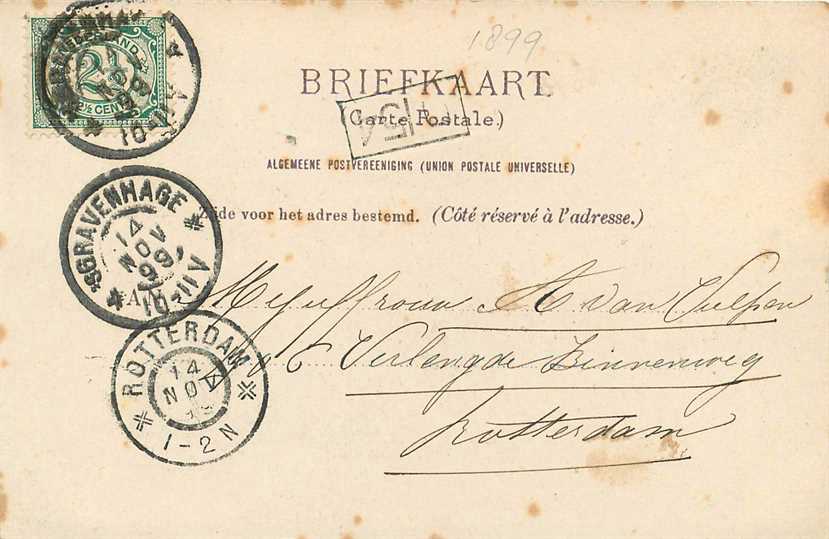 1899
NEDERLAND
2½
2½ CENT
BRIEFKAART
(Carte Postale.)
154
ALGEMEENE POSTVEREENIGING (UNION POSTALE UNIVERSELLE)
Zijde voor het adres bestemd. (Côté réservé à l'adresse.)
'SGRAVENHAGE
14
NOV
99
10-11V
Mejuffrouw A van Vulpen
Verlengde Binnenweg
Rotterdam
ROTTERDAM
14
NOV
1-2N